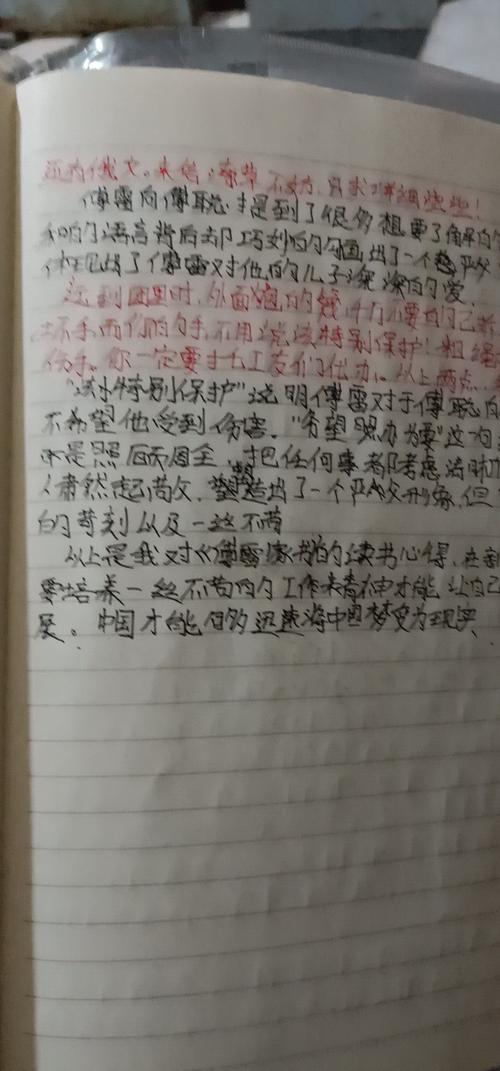 还有俄文。来信潦草不妨,只求详细些些!
傅雷向傅聪提到了很多想要了解的
和的语言背后却巧妙的勾画出了一个严父
体现出了傅雷对他的儿子深深的爱。
还到团里时,外面包的绳千万不要自己
手,而你的手,不用说该特别保护!粗绳
伤手。你一定要托工友们代办。以上两点,
“该特别保护”说明傅雷对于傅聪的
不希望他受到伤害。“希望照办为要”这句
来是照顾周全,把任何事都考虑
人肃然起敬,塑造出了一个严父形象,但
的苛刻以及一丝不苟
以上是我对《傅雷家书》的读书心得,在
要培养一丝不苟的工作才能让自己
展。中国才能够迅速将中国梦变为现实